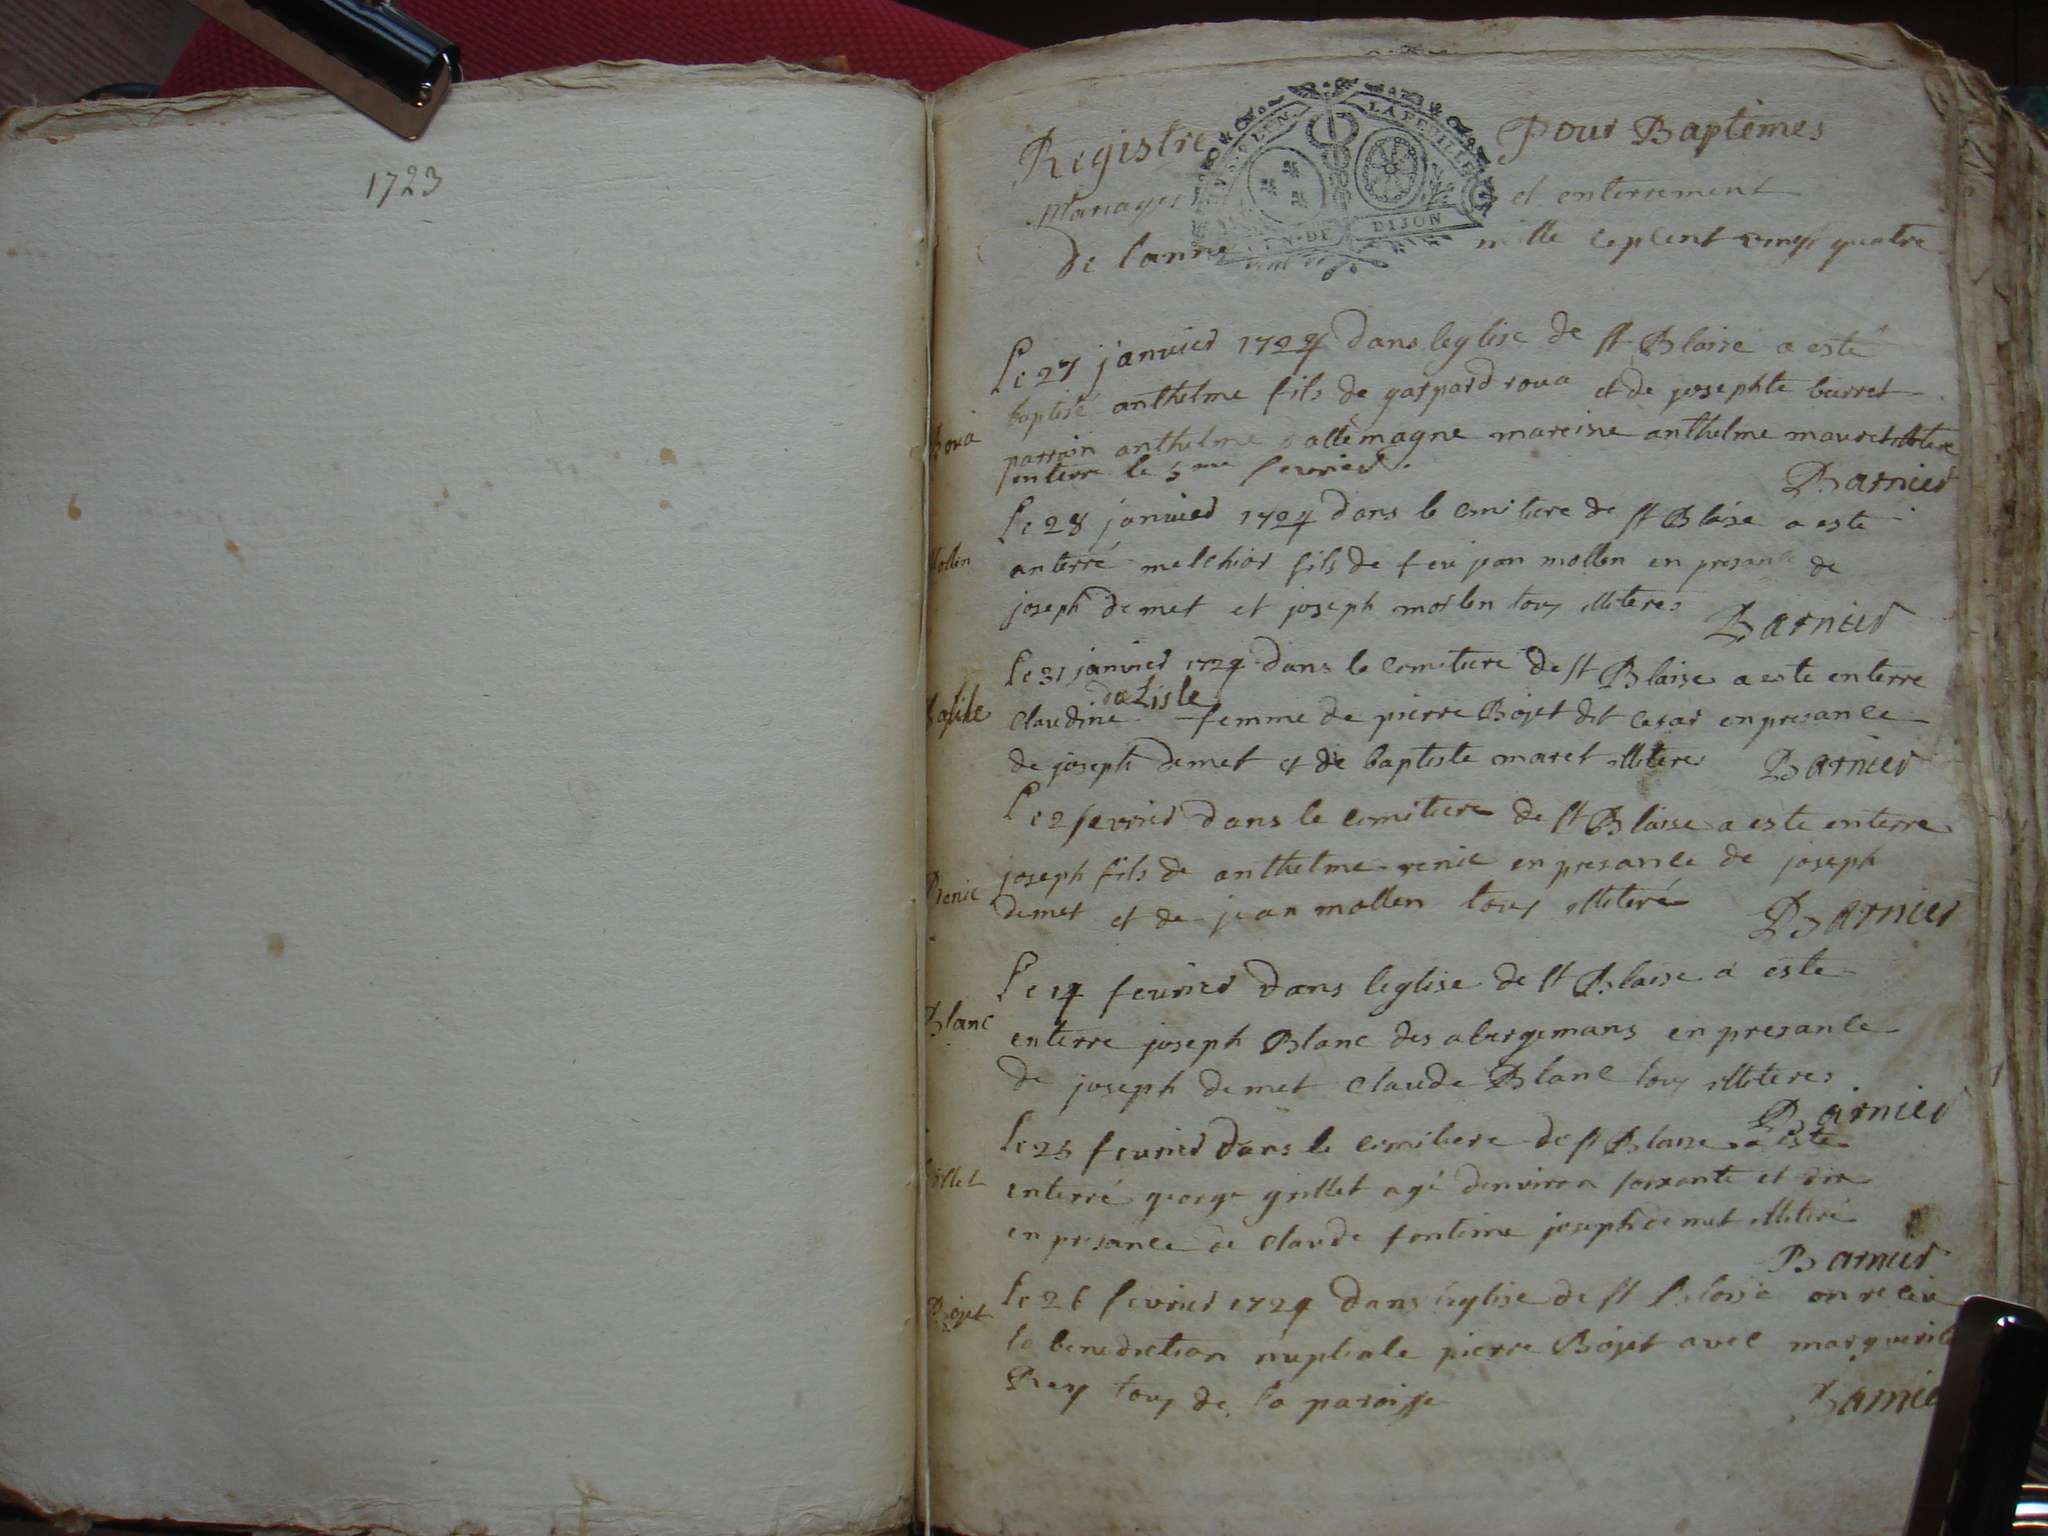 1723
Registre Pour Baptêmes
Mariages et enterrement
de l'année mille sept cent vingt quatre
LA FEUILLE
GEN. DE DIJON
Le 27 janvier 1724 dans leglise de st Blaise a esté
Roua
baptisé anthelme fils de gaspard roua et de josephte burret
parrin anthelme dallemagne mareine anthelme mauret illitere
enterre le 5me fevrier.
Barnier
Le 28 janvier 1724 dans le cimitiere de st Blaise a este
mollen
anterré melchior fils de feu jean mollen en presance de
joseph demet et joseph mollen tous illiteres
Barnier
Le 31 janvier 1724 dans le cimitiere de st Blaise a este enterre
claudine daLisle femme de pierre Bojet dit cesar en presance
de joseph demet et de baptiste maret illiteres Barnier
Le 2 fevrier dans le cimitiere de st Blaise a este enterre
Renie
joseph fils de anthelme renie en presance de joseph
demet et de jean mollen tous illiteré
Barnier
Le 14 fevrier dans leglise de st Blaise a este
Blanc
enterre joseph Blanc des abergemans en presance
de joseph demet claude Blanc tous illiteres
Barnier
Le 25 fevrier dans le cimitiere de st Blaise a este
grillet
enterré george grillet agé denviron soixante et dix
en presance de claude fonteine joseph demet illiteré
Barnier
Bojet
Le 26 fevrier 1724 dans leglise de st Blaise on receu
la benediction nuptiale pierre Bojet avec marguerite
Rey tous de la paroisse
Barnier